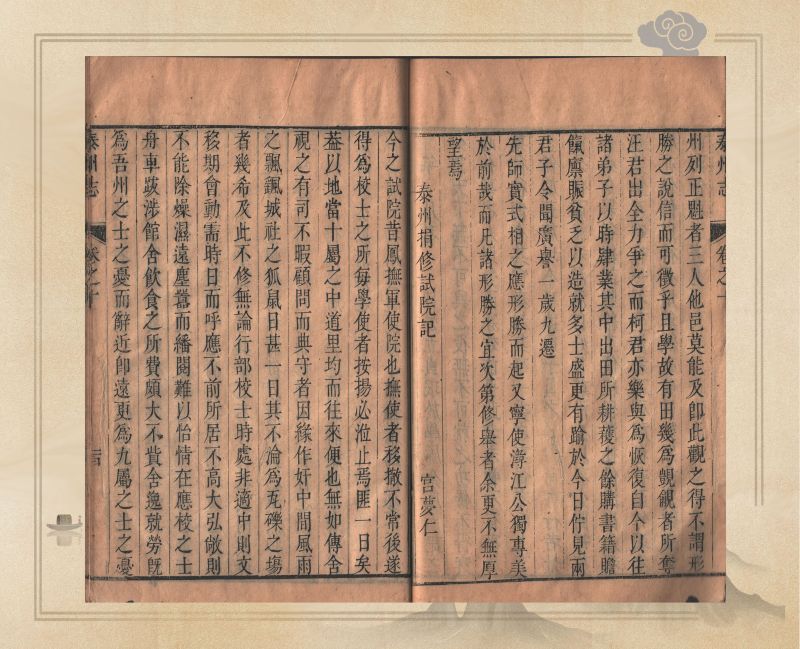 泰州志 卷之十
州列正魁者三人他邑莫能及卽此觀之得不謂形
勝之說信而可徵乎且學故有田幾爲覬覦者所奪
汪君出全力爭之而柯君亦樂與爲恢復自今以往
諸弟子以時肄業其中出田所耕穫之餘購書籍贍
餼廪賑貧乏以造就多士盛更有踰於今日佇見兩
君子令聞廣譽一歲九遷
先師實式相之應形勝而起又寧使漳江公獨專美
於前哉而凡諸形勝之宜次第修舉者余更不無厚
望焉
泰州捐修試院記 宫夢仁
今之試院昔鳳撫軍使院也撫使者移撤不常後遂
得爲校士之所每學使者按揚必涖止焉匪一日矣
葢以地當十屬之中道里均而往來便也無如傳舍
視之有司不暇顧問而典守者因緣作奸中間風雨
之飄颻城社之狐鼠日甚一日其不淪爲瓦礫之場
者幾希及此不修無論行部校士時處非適中則文
移期會動需時日而呼應不前所居不高大弘敞則
不能除燥濕遠塵囂而繙閱難以怡情在應校之士
舟車跋涉館舍飲食之所費頗大不貲舍逸就勞旣
爲吾州之士之憂而辭近卽遠更爲九屬之士之憂
泰州志 卷之十